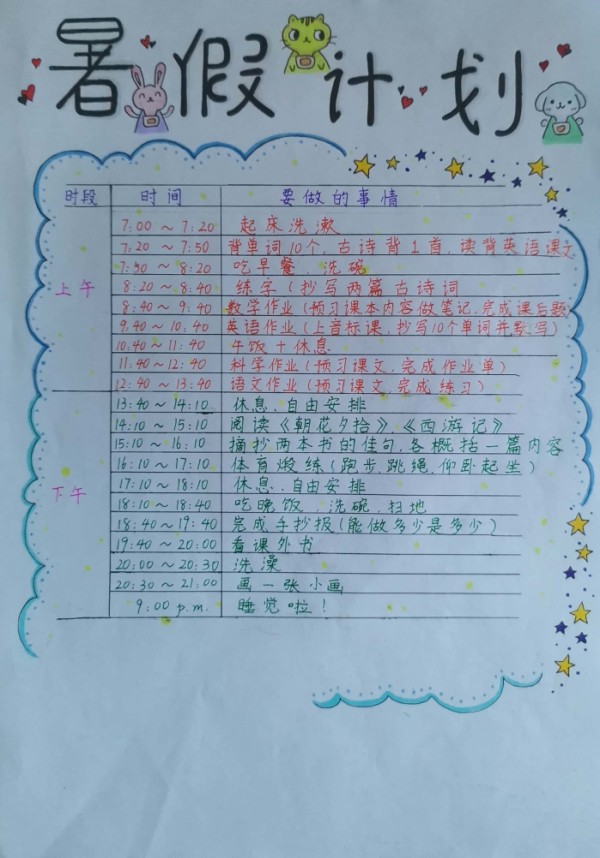 暑假计划
时段 时间 要做的事情
上午
7:00～7:20 起床洗漱
7:20～7:50 背单词10个，古诗背1首，读背英语课文
7:50～8:20 吃早餐、洗碗
8:20～8:40 练字(抄写两篇古诗词
8:40～9:40 数学作业(预习课本内容做笔记，完成课后题)
9:40～10:40 英语作业(上音标课，抄写10个单词并默写)
10:40～11:40 午饭+休息
11:40～12:40 科学作业(预习课文，完成作业单)
12:40～13:40 语文作业(预习课文，完成练习)
下午
13:40～14:10 休息、自由安排
14:10～15:10 阅读《朝花夕拾》、《西游记》
15:10～16:10 摘抄两本书的佳句，各概括一篇内容
16:10～17:10 体育煅练(跑步、跳绳、仰卧起坐)
17:10～18:10 休息、自由安排
18:10～18:40 吃晚饭、洗碗、扫地
18:40～19:40 完成手抄报(能做多少是多少)
19:40～20:00 看课外书
20:00～20:30 洗澡
20:30～21:00 画一张小画
9:00 p.m. 睡觉啦！